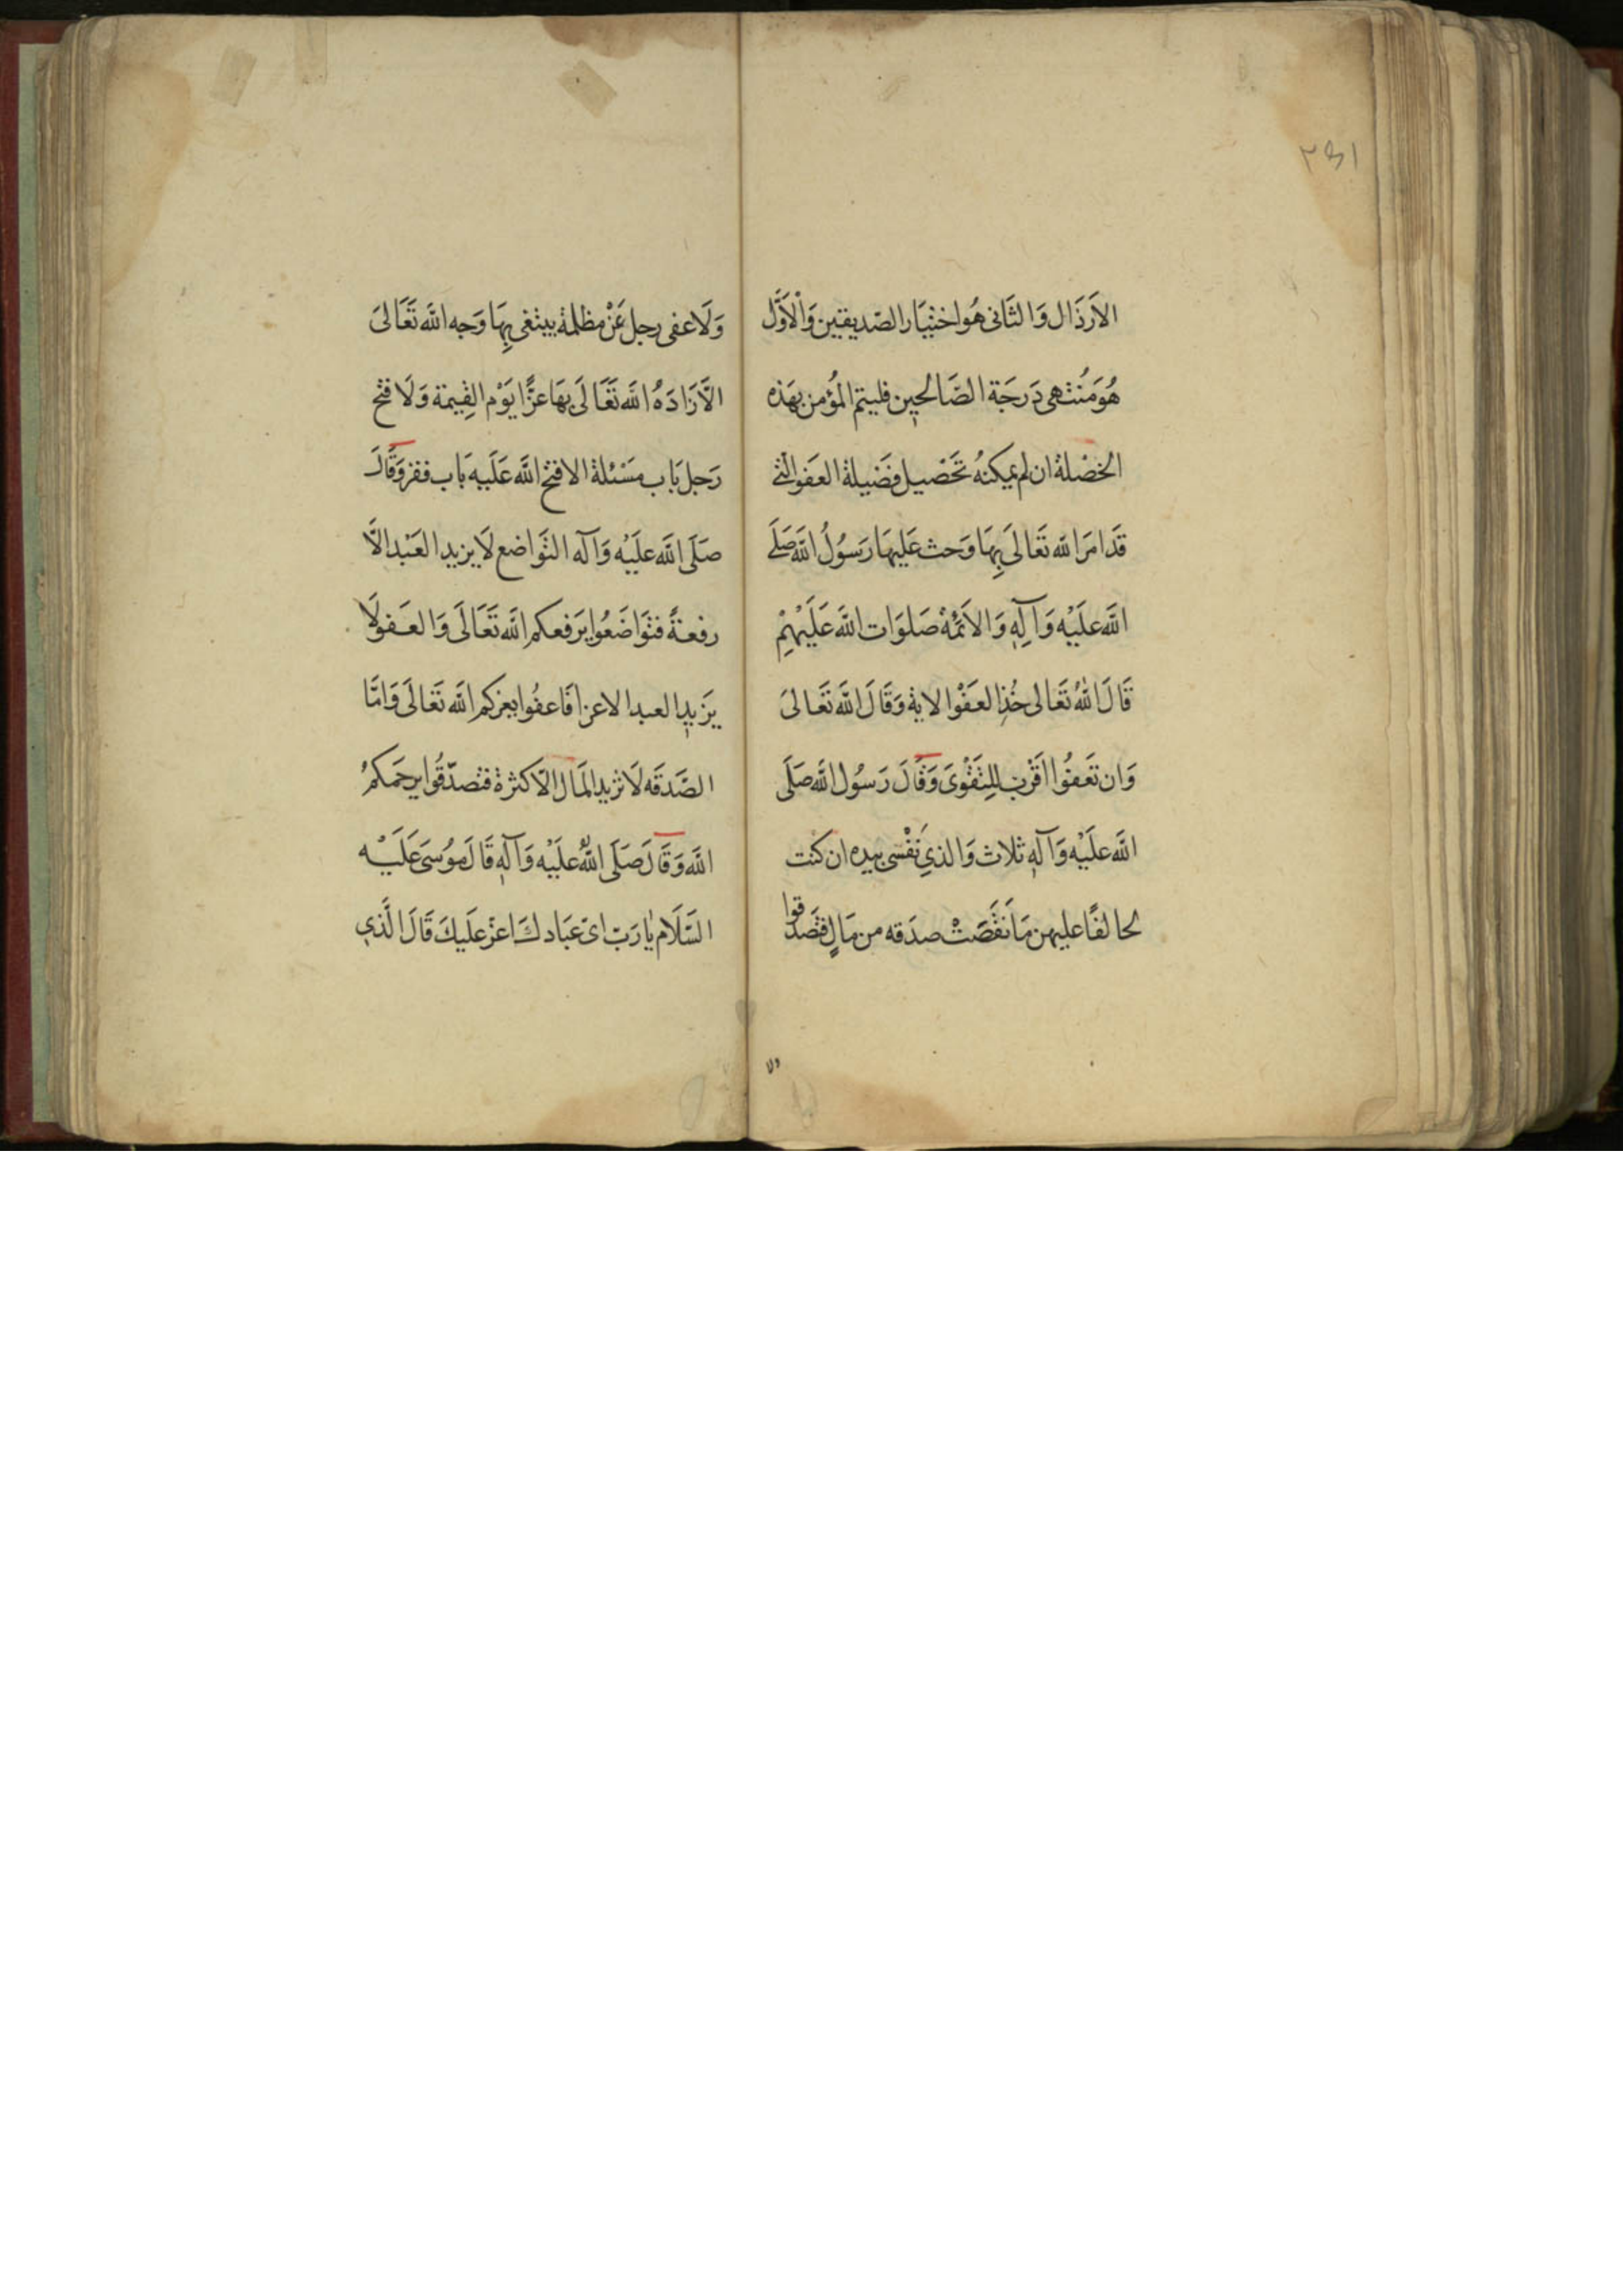 الاَرذَال وَالثَانى هُوا ختيَار الصّديقين وَالْاَوَّل
هُوَمُنتهى دَرجَة الصَّالحين فليتم المؤمن بهَذه
الخصْلة ان لم يمكنهُ تَحْصيل فضَيلة العَفو الّتى
قَد امَرَ الله تعَالىَ بِهَا وَحث عَليهَا رَسوُلُ الله صَلَے
الله علَيْه وَآلِهِ وَالائمَّة صَلوَات الله عَلَيْهِمْ
قَالَ اللهُ تعَالى خُذِ العَفْوَ الاية وَقَالَ الله تَعَالىَ
وَان تَعَفُوا اَقرَب لِلتَّقْوىَ وَقَالَ رَسوُل الله صَلَى
الله علَيْه وَآلهِ ثلاث وَالذىِ نَفْسى بيده ان كنت
لحالفًا عليهن مَا نَقَصَتْ صدَقه من مَالٍ فتصَدقوا
وَلَا عفى رجل عَنْ مظلمة يبتغى بِهَا وَجه الله تَعَالىَ
الَّا زَادَهُ الله تَعَالَى بهَا عزًّا يَوْم القِيمة وَلَا فتح
رَجل بَاب مَسْئلة الا فتح الله عَلَيه بَاب فقر وَقَالَ
صَلَى الله علَيْه وَآله التوَاضع لَا يزيد العَبْد الَّا
رفعةً فتوَاضَعُوا يَرفعكم الله تَعَالَى وَالعَفو لَا
يزَيدِ العبد الا عزا فَاعفُوا يعزكم الله تعَالَى وَامَّا
الصَّدقَه لَا تزيد المَال الّا كثرة فتصدّقُوا يرحَمكمُ
الله وَقَالَ صَلَى اللهُ علَيْه وَآلهِ قَالَ موُسىَ عَلَيْه
السَّلَام يٰا رَبّ اىّ عبَادكَ اعزّ علَيكَ قَالَ الَّذىِ